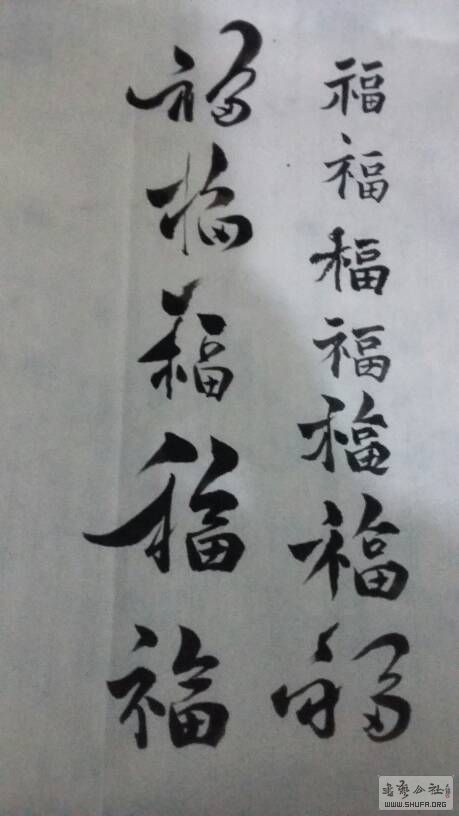 福福福福福福福
福福福福福
書艺公社
WWW.SHUFA.ORG